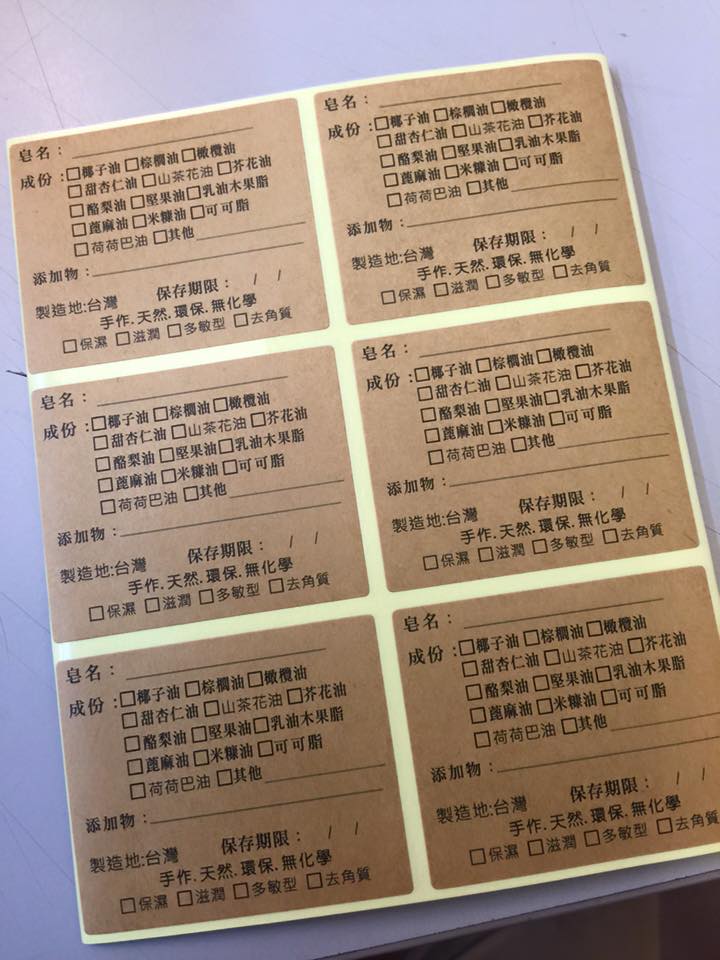 皂名：
成份：□椰子油 □棕櫚油 □橄欖油
□甜杏仁油 □山茶花油 □芥花油
□酪梨油 □堅果油 □乳油木果脂
□蓖麻油 □米糠油 □可可脂
□荷荷巴油 □其他
添加物：
製造地:台灣 保存期限： / /
手作.天然.環保.無化學
□保濕 □滋潤 □多敏型 □去角質
皂名：
成份：□椰子油 □棕櫚油 □橄欖油
□甜杏仁油 □山茶花油 □芥花油
□酪梨油 □堅果油 □乳油木果脂
□蓖麻油 □米糠油 □可可脂
□荷荷巴油 □其他
添加物：
製造地:台灣 保存期限： / /
手作.天然.環保.無化學
□保濕 □滋潤 □多敏型 □去角質
皂名：
成份：□椰子油 □棕櫚油 □橄欖油
□甜杏仁油 □山茶花油 □芥花油
□酪梨油 □堅果油 □乳油木果脂
□蓖麻油 □米糠油 □可可脂
□荷荷巴油 □其他
添加物：
製造地:台灣 保存期限： / /
手作.天然.環保.無化學
□保濕 □滋潤 □多敏型 □去角質
皂名：
成份：□椰子油 □棕櫚油 □橄欖油
□甜杏仁油 □山茶花油 □芥花油
□酪梨油 □堅果油 □乳油木果脂
□蓖麻油 □米糠油 □可可脂
□荷荷巴油 □其他
添加物：
製造地:台灣 保存期限： / /
手作.天然.環保.無化學
□保濕 □滋潤 □多敏型 □去角質
皂名：
成份：□椰子油 □棕櫚油 □橄欖油
□甜杏仁油 □山茶花油 □芥花油
□酪梨油 □堅果油 □乳油木果脂
□蓖麻油 □米糠油 □可可脂
□荷荷巴油 □其他
添加物：
製造地:台灣 保存期限： / /
手作.天然.環保.無化學
□保濕 □滋潤 □多敏型 □去角質
皂名：
成份：□椰子油 □棕櫚油 □橄欖油
□甜杏仁油 □山茶花油 □芥花油
□酪梨油 □堅果油 □乳油木果脂
□蓖麻油 □米糠油 □可可脂
□荷荷巴油 □其他
添加物：
製造地:台灣 保存期限： / /
手作.天然.環保.無化學
□保濕 □滋潤 □多敏型 □去角質